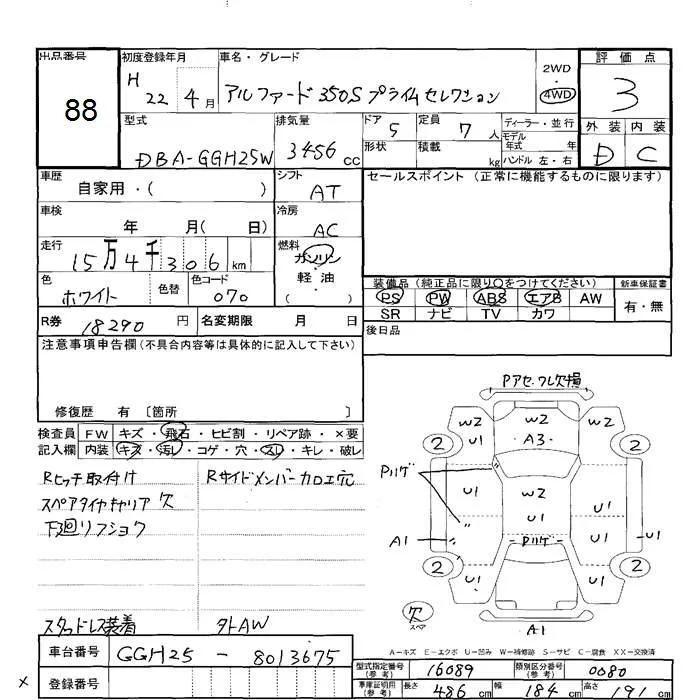 出品番号 88
初度登録年月 H 22 4月
車名・グレード アルファード 350S プライムセレクション
2WD・4WD
評価点 3
外装 D 内装 C
型式 DBA-GGH25W
排気量 3456cc
ドア 5
形状
定員 7人
積載 kg
ディーラー・並行
モデル年式 年
ハンドル 左・右
車歴 自家用・( )
シフト AT
セールスポイント (正常に機能するものに限ります)
車検 年 月( 日)
冷房 AC
走行 15万4千306km
燃料 ガソリン・軽油 ( )
色 ホワイト 色替 色コード 070
装備品 (純正品に限り○をつけてください) 新車保証書
PS PW ABS エアB AW 有・無
SR ナビ TV カワ
R券 18290円 名変期限 月 日
後日品
注意事項申告欄 (不具合内容等は具体的に記入して下さい)
修復歴 有 〔箇所 〕
検査員 FW キズ・飛石・ヒビ割・リペア跡・×要
記入欄 内装 キズ・汚レ・コゲ・穴・スレ・キレ・破レ
Rヒッチ取付け Rサイドメンバーカロエ穴
スペアタイヤキャリア欠
下廻リフショク
スタッドレス装着 外AW
Pアセ、フレ欠損
W2 W2 W2
U1 A3
2 2
Pハゲ
U1 W2 U1
U1
A1 Pハゲ U1 U1
2 2
U1 U1
欠 スペア
A1
A-キズ E-エクボ U-凹み W-補修跡 S-サビ C-腐食 XX-交換済
車台番号 GGH25 - 8013675
型式指定番号(参考) 16089 類別区分番号(参考) 0080
× 登録番号
車庫証明用(参考) 長さ 486cm 幅 184cm 高さ 191cm